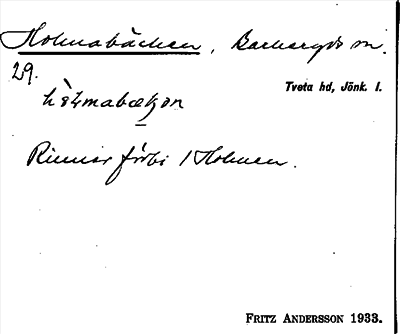 Holmabäcken, Barkeryds sn.
29.
Tveta hd, Jönk. l.
Rinner förbi 1 Holmen.
FRITZ ANDERSSON 1933.